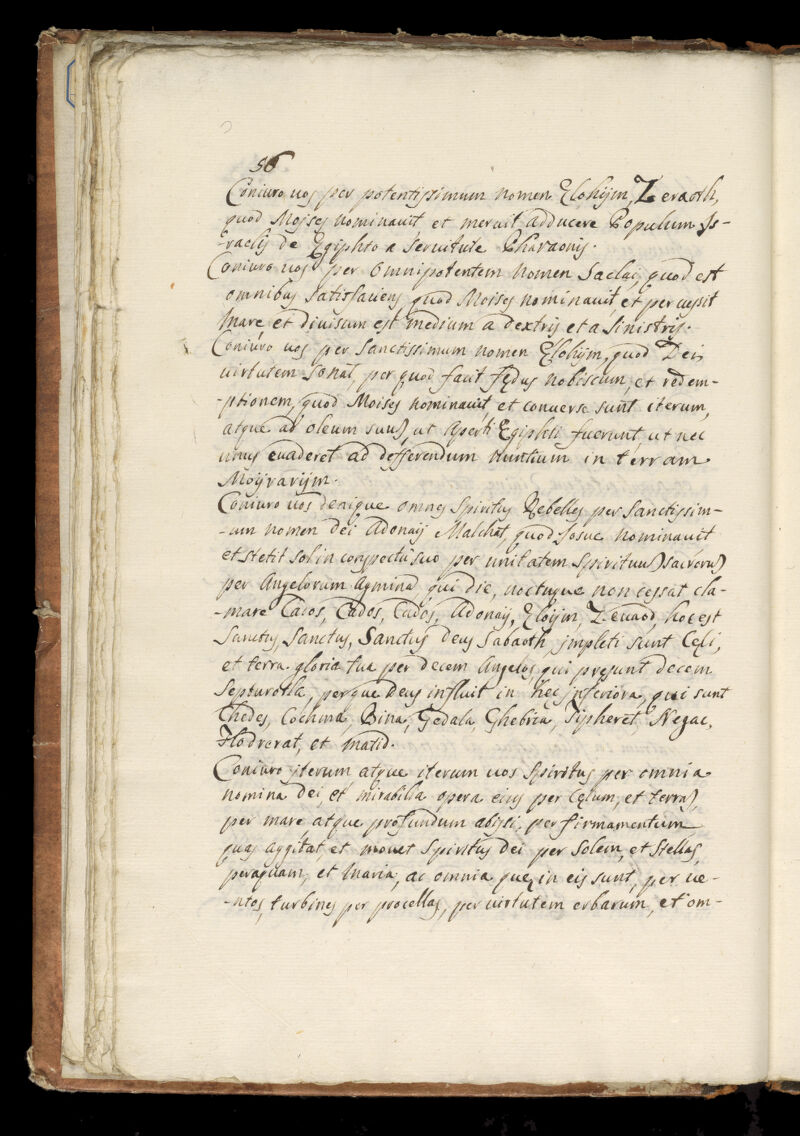 56
Coniuro uos per potentissimum nomen Elohijm, Zeraoth,
quod Moises nominauit et meruit adducere Populum Js-
-raelis de Egiphto a seruitute Pharaonis.
Coniuro uos per Omnipotentem nomen Saclay, quod est
omnibus satisfaciens quod Moises nominauit, et percussit
mare, et diuisum est medium a dextris et a sinistris.
Coniuro uos per Sanctissimum nomen Elohijm, quod Dei
uirtutem sonat, per quod facit fędus nobiscum, et redem-
-ptionem, quod Moises nominauit, et conuerse sunt iterum,
atque ad oleum suum, ut Aperti Egiphti fuerunt, ut nec
unus euaderet ad defferendum nuntium in terram
Moijvarijm.
Coniuro uos denique omnes Spiritus Rebelles per Sanctissim-
-um nomen dei Adonaij Malchat, quod Josue nominauit
et stetit sol in conspectu suo per unitatem Spirituum sacrorum
per Angelorum Agmina qui die, noctuque non cessat cla-
-mare Cados, Cados, Cados, Adonaij, Eloijm, Zeuaod, hoc est
Sanctus, Sanctus, Sanctus deus Sabaoth, impleti sunt Cęli,
et terra gloria tua per decem Angelos qui pręsunt decem
Septurotha, perque deus influit in hęc inferiora, qui sunt
Chedes, Cochma, Bina, Gedala, Ghebria, Tipheret, Negac,
Hodrerat, et matid.
Coniuro iterum atque iterum uos Spiritus per omnia
nomina dei, et mirabilia opera eius per Cęlum, et terram,
per mare, atque profundum abijsi, per firmamentum
quas aggitat, et mouet Spiritus dei per Solem, et Stellas,
per aquam, et Maria, ac omnia quę in eis sunt, per ue-
-ntos, turbines per procellas, per uirtutem erbarum, et om-